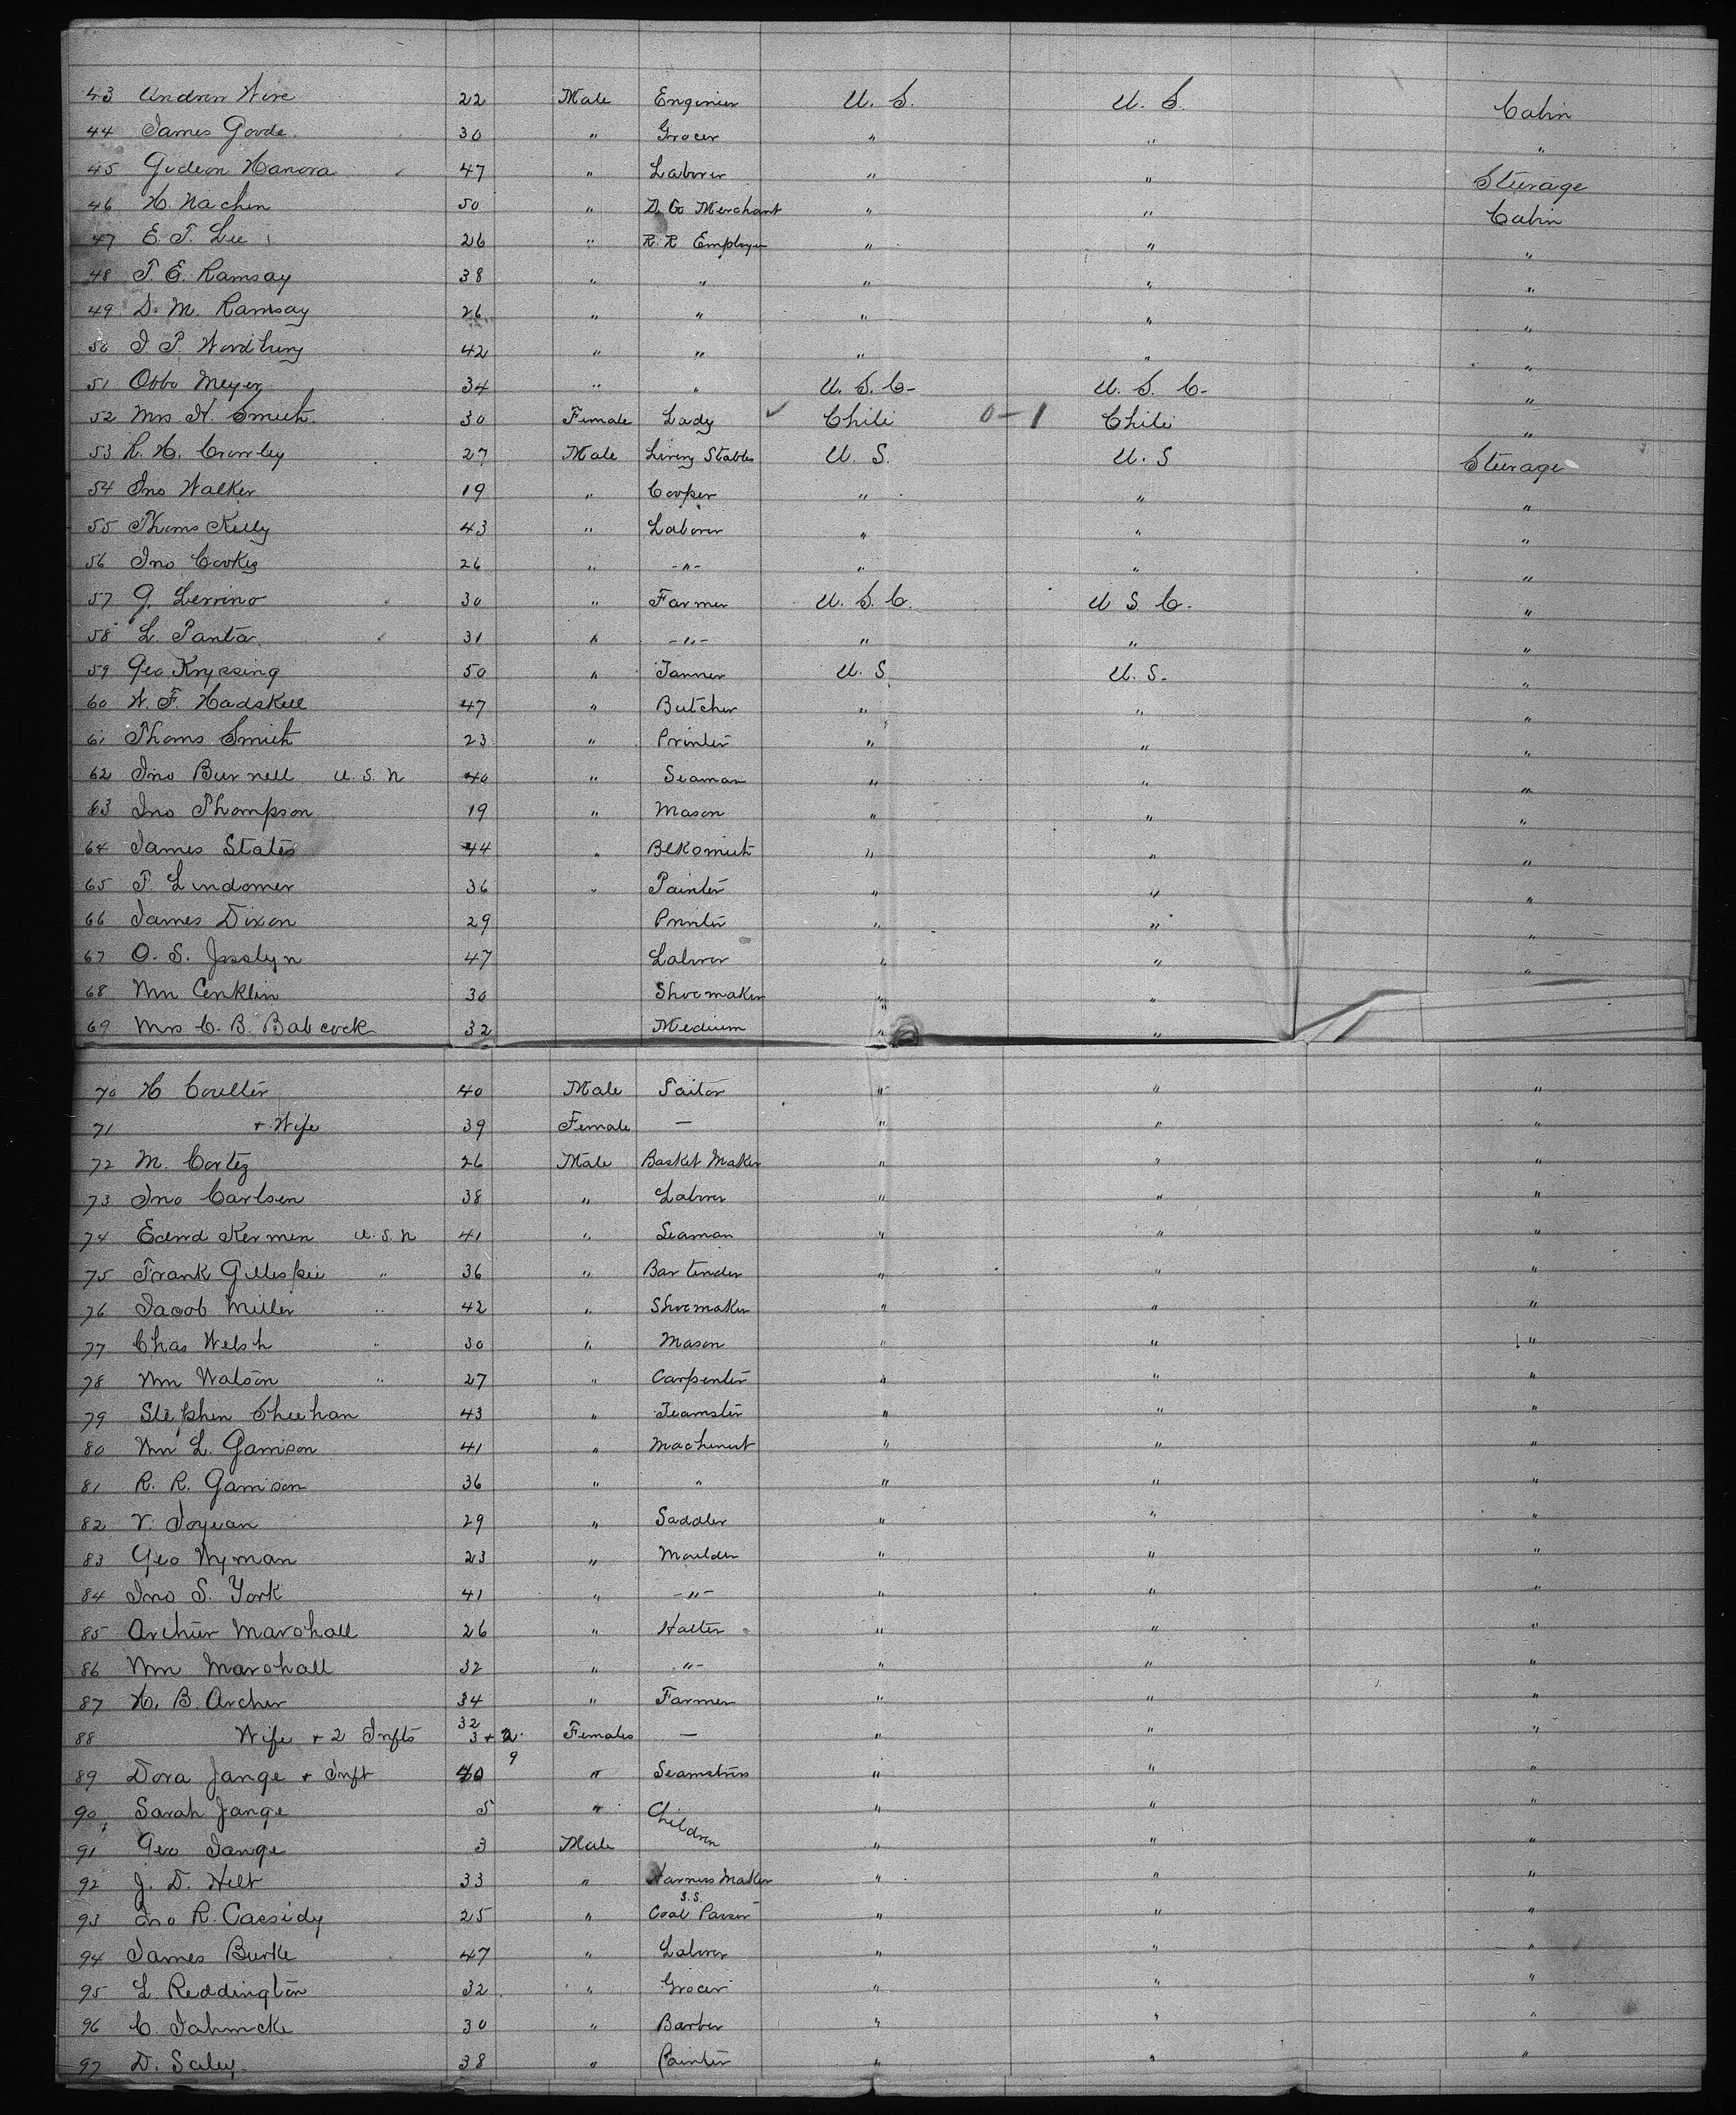 43 Andrew Wire 22 Male Engineer U. S. U. S. Cabin
44 James Goode 30 " Grocer " " "
45 Gideon Hanora 47 " Laborer " " Steerage
46 H. Nachen 50 " D. G. Merchant " " Cabin
47 E. T. Lee 26 " R. R Employee " " "
48 T. E. Ramsay 38 " " " " "
49 D. M. Ramsay 26 " " " " "
50 J. P. Woodbury 42 " " " " "
51 Otto Meyer 34 " " U. S. C- U. S. C- "
52 Mrs H. Smith 30 Female Lady ✓ Chili 0-1 Chili "
53 R. H. Crowley 27 Male Livery Stables U. S. U. S Steerage
54 Jno Walker 19 " Cooper " " "
55 Thoms Kelly 43 " Laborer " " "
56 Jno Cooke 26 " -"- " " "
57 G. Lerrino 30 " Farmer U. S. C. U S. C. "
58 L. Panta 31 " -"- " " "
59 Geo Kryssing 50 " Tanner U. S. U. S. "
60 W. F. Hadskell 47 " Butcher " " "
61 Thoms Smith 23 " Printer " " "
62 Jno Burnell U. S. N 40 " Seaman " " "
63 Jno Thompson 19 " Mason " " "
64 James States 44 " Blksmith " " "
65 F. Lindomer 36 " Painter " " "
66 James Dixon 29 Printer " " "
67 O. S. Josslyn 47 Laborer " " "
68 Wm Conklin 30 Shoemaker " "
69 Mrs C. B. Babcock 32 Medium " "
70 H Coulter 40 Male Tailor " " "
71 + Wife 39 Female — " " "
72 M. Cortez 26 Male Basket Maker " " "
73 Jno Carlsen 38 " Laborer " " "
74 Edmd Kermen U. S. N 41 " Seaman " " "
75 Frank Gillespie " 36 " Bar tender " " "
76 Jacob Miller " 42 " Shoemaker " " "
77 Chas Welsh " 30 " Mason " " "
78 Wm Watson " 27 " Carpenter " " "
79 Stephen Sheehan 43 " Teamster " " "
80 Wm L. Garrison 41 " Machinist " " "
81 R. R. Garrison 36 " " " " "
82 V. 29 " Saddler " " "
83 Geo Wyman 23 " Moulder " " "
84 Jno S. York 41 " -"- " " "
85 Arthur Marshall 26 " Hatter " " "
86 Wm Marshall 32 " -"- " " "
87 H. B. Archer 34 " Farmer " " "
88 Wife + 2 Infts 32 3 + 2 Females — " " "
89 Dora Jange + Inft 40 9 " Seamstress " " "
90 Sarah Jange 5 " Children " " "
91 Geo Jange 3 Male " " "
92 J. D. Helt 33 " Harness Maker " " "
93 Jno R. Cassidy 25 " S.S. Coal Passer " " "
94 James Burke 47 " Laborer " " "
95 L. Reddington 32 " Grocer " " "
96 C. Jahmcke 30 " Barber " " "
97 D. 38 " Painter " " "